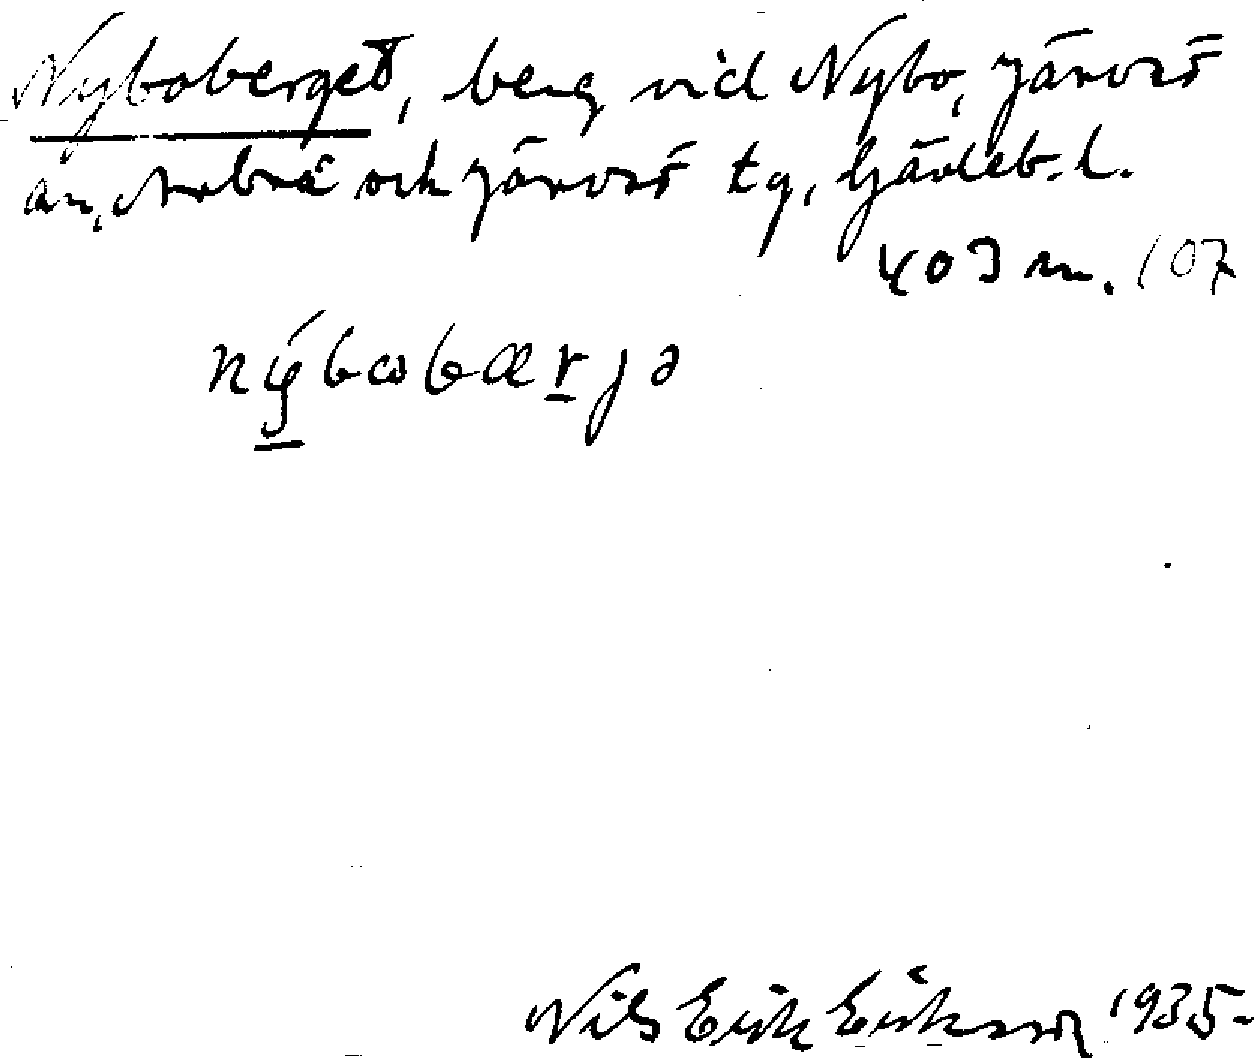 Nyboberget, berg vid Nybo, Järvsö
sn, Arbrå och Järvsö tg, Gävleb. l.
403 m. 107
nýbωbærjə
Nils Erik Eriksson 1935.